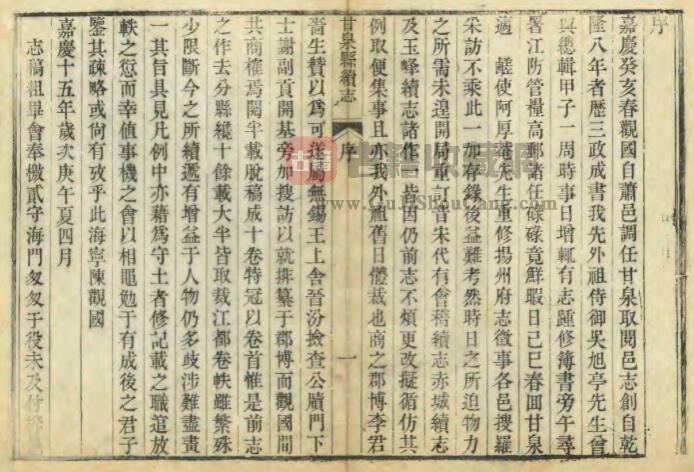 序
嘉慶癸亥春觀國自蕭邑調任甘泉取閱邑志創自乾
隆八年者歷三政成書我先外祖侍御吳旭亭先生曾
與總輯甲子一周時事日增輒有志踵修簿書旁午尋
署江防管糧高郵諸任碌碌竟鮮暇日己巳春回甘泉
適 鹺使阿厚菴先生重修揚州府志徵事各邑搜羅
采訪不乘此一加存錄後益難考然時日之所迫物力
之所需未遑開局重訂昔宋代有會稽續志赤城續志
及玉峰續志諸作皆因仍前志不煩更改擬循仿其
例取便集事且亦我外祖舊日體裁也商之郡博李君
甘泉縣續志 序 一
嗇生贊以為可遂屬無錫王上舍晉汾撿查公牘門下
士謝副貢開基旁加搜訪以就排纂于郡博而觀國間
共商榷焉閱半載脫稿成十卷特冠以卷首惟是前志
之作去分縣纔十餘載大半皆取裁江都卷帙雖繁殊
少限斷今之所續遞有增益于人物仍多歧涉難盡畫
一其旨具見凡例中亦藉為守土者修記載之職逭放
軼之愆而幸值事機之會以相黽勉于有成後之君子
鑒其疎略或尚有攷乎此海寧陳觀國
嘉慶十五年歲次庚午夏四月
志稿粗畢會奉檄貳守海門匆匆于役未及付
古籍收藏网
www.GuJiShouCang.com